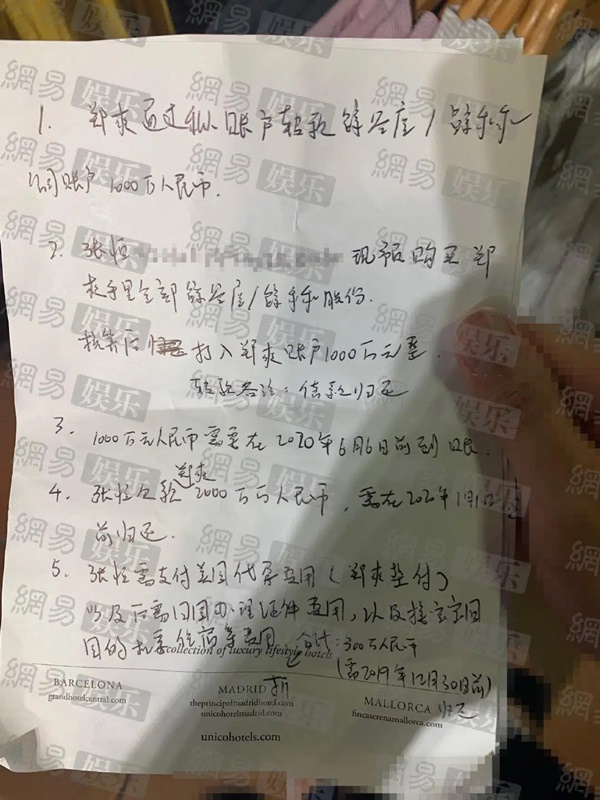 1. 郑爽通过私人账户转款
公司账户1000万人民币.
2. 张恒 现币购买郑
爽手里全部 股份.
核算后 打入郑爽账户1000万元整.
转款备注:借款归还
3. 1000万元人民币需要在2020年6月6日前到账.
郑爽
4. 张恒欠款2000万元人民币,需在2020年1月1日
前归还.
5. 张恒需支付美国代孕费用(郑爽垫付)
以及后需回国办理证件费用,以及接宝宝回
国的机票住宿等费用,合计:300万人民币
collection of luxury lifestyle hotels
(需2019年12月30日前)
BARCELONA
grandhotelcentral.com
MADRID
theprincipalmadridhotel.com
unicohotelmadrid.com
MALLORCA 归还
fincaserenamallorca.com
unicohotels.com
網易娱乐